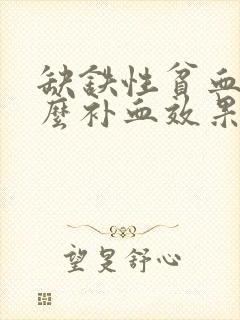 缺铁性贫血
麽补血效果
望是舒心